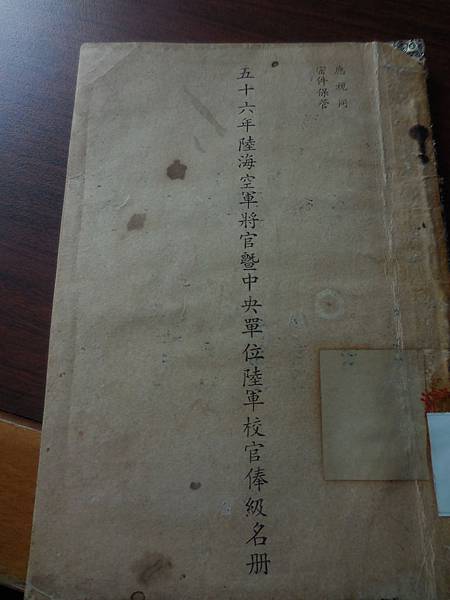 應視同
密件保管
五十六年陸海空軍將官暨中央單位陸軍校官俸級名册